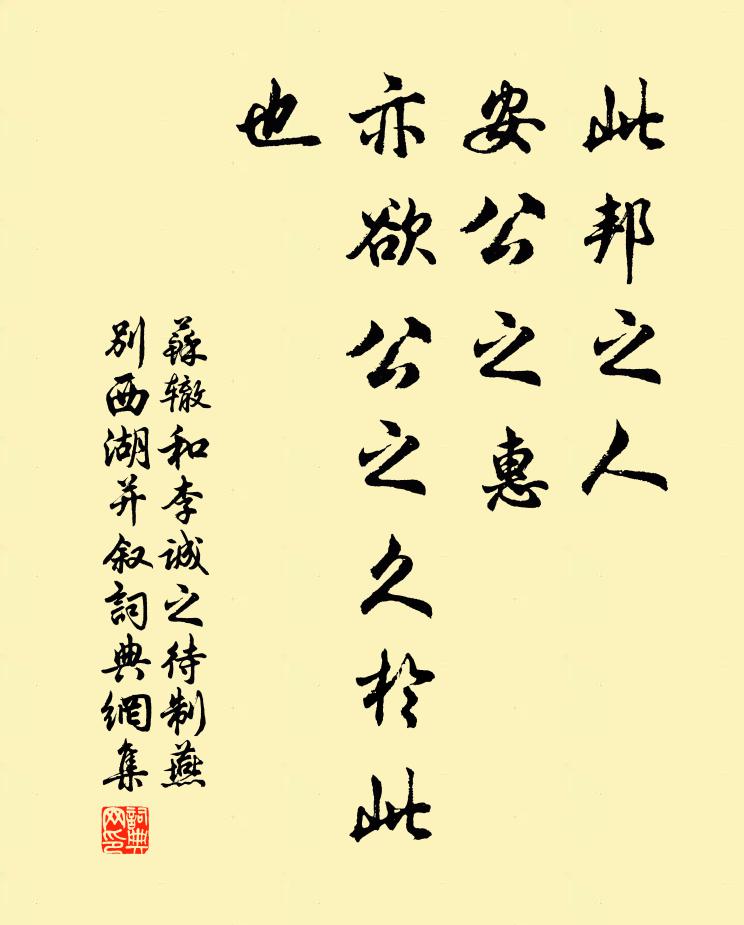 此邦之人
安公之惠
亦欲公之久於此
也
蘇辙和李诚之待制燕
别西湖并叙詞典網集
詞典网印